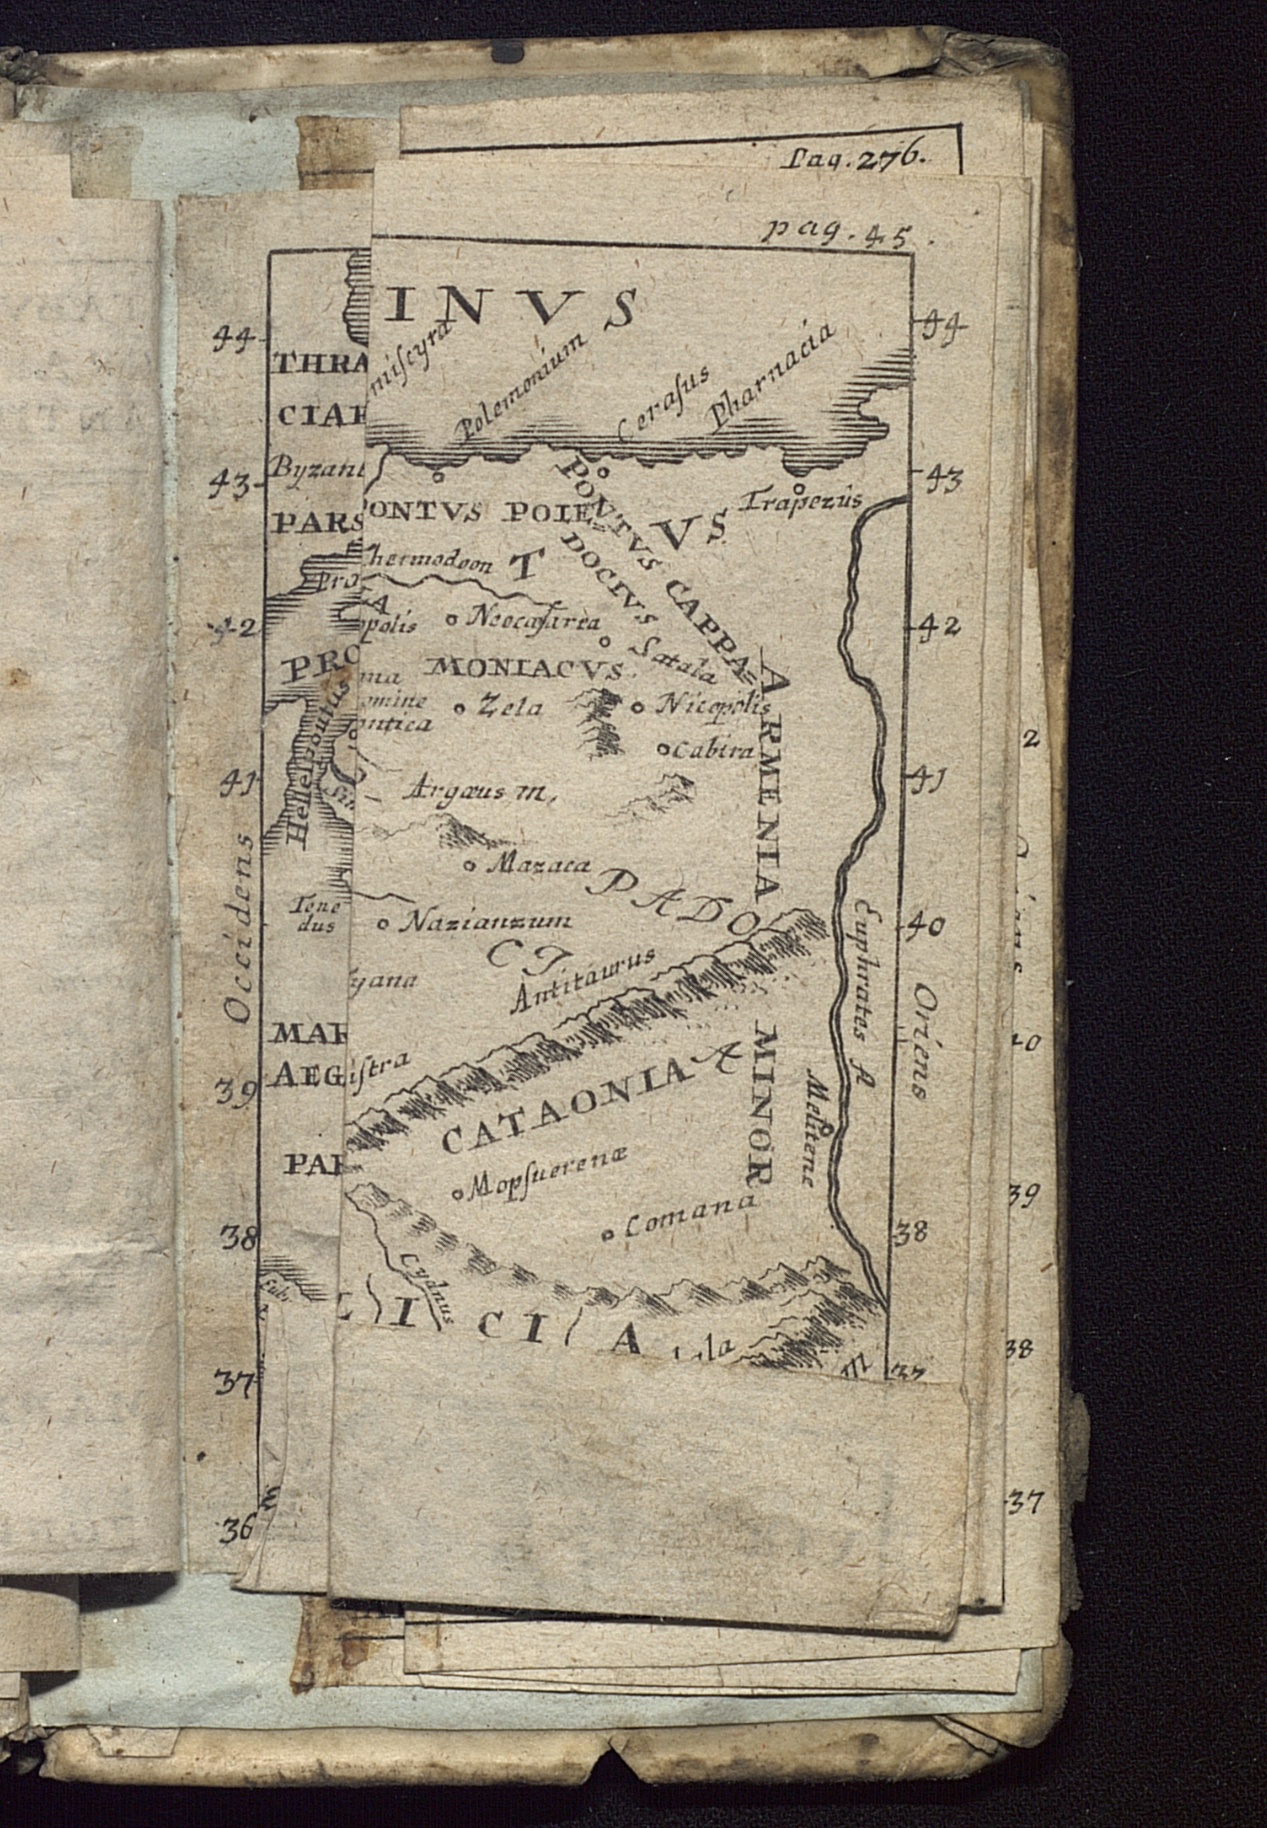 Pag. 276.
pag. 45.
INVS
44
44
THRA
miſcyra
Polemonium
Ceraſus
Pharnacia
CIAE
Byzant
43
43
PARS
ONTVS POLE=
PONTVS CAPPA=
DOCIVS
VS
Trapezûs
hermodoon
T
Pro
42
opolis
Neocæſarea
42
Satala
PRO
ma
MONIACVS
omine
Zela
Nicopolis
ontica
Cabira
Hellespontus
41
41
Argæus m.
ARMENIA
MINOR
Mazaca
PADO
Tene
dus
Nazianzum
40
Occidens
Oriens
Euphrates fl
yana
C
Antitaurus
MAR
AEG
iſtra
39
CATAONIA
Melitene
PAR
Mopſuerenæ
Comana
38
38
Cydnus
LICIA
37
37
36
2
40
39
38
37